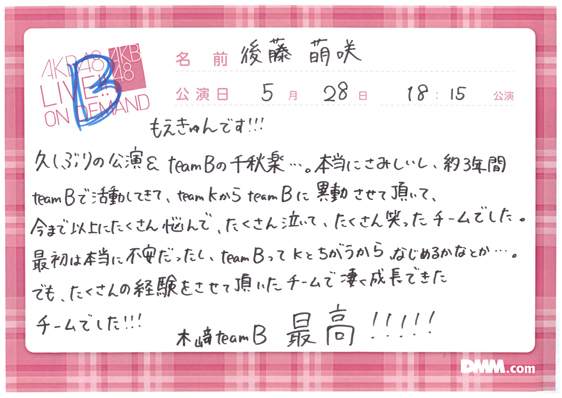 AKB48
LIVE!!
ON DEMAND
AKB
48
B
名 前 後藤 萌咲
公演日 5月 28日 18:15 公演
もえきゅんです!!!
久しぶりの公演& teamBの千秋楽…。本当にさみしいし、約3年間
teamBで活動してきて、teamKからteamBに異動させて頂いて、
今まで以上にたくさん悩んで、たくさん泣いて、たくさん笑ったチームでした。
最初は本当に不安だったし、teamBってKとちがうから、なじめるかなとか…。
でも、たくさんの経験をさせて頂いたチームで凄く成長できた
チームでした!!!
木﨑teamB 最高!!!!!
DMM.com